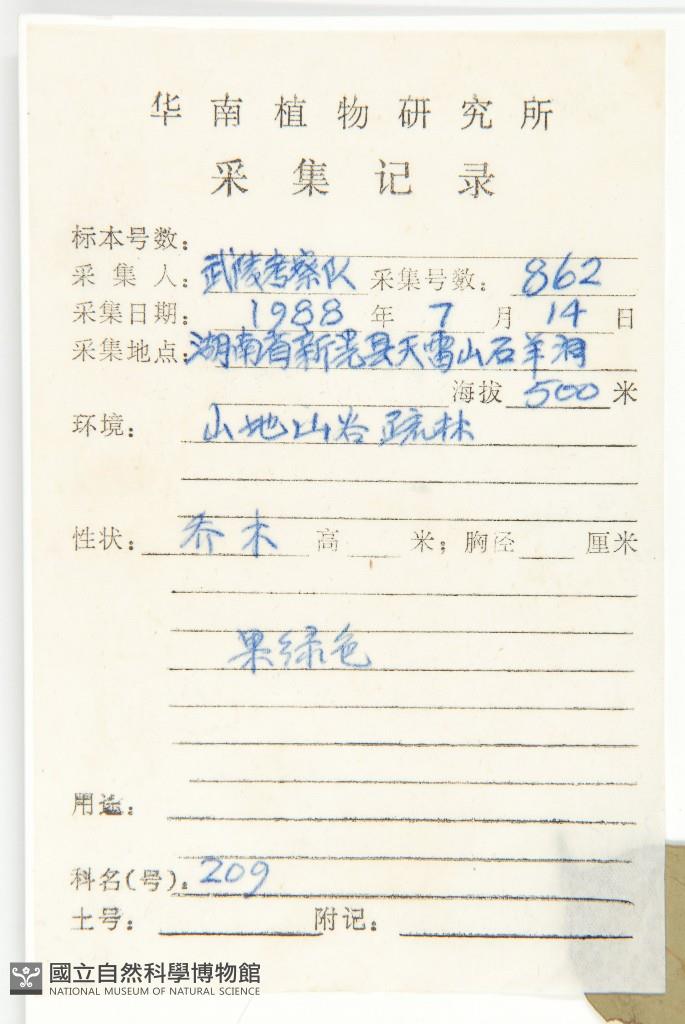 华南植物研究所
采集记录
标本号数：
采集人：武陵考察队 采集号数：862
采集日期：1988 年 7 月 14 日
采集地点：湖南省新晃县天雷山石羊洞
海拔 500 米
环境：山地山谷疏林
性状：乔木 高 米；胸径 厘米
果绿色
用途：
科名(号)：209
土号： 附记：
國立自然科學博物館
NATIONAL MUSEUM OF NATURAL SCIENCE